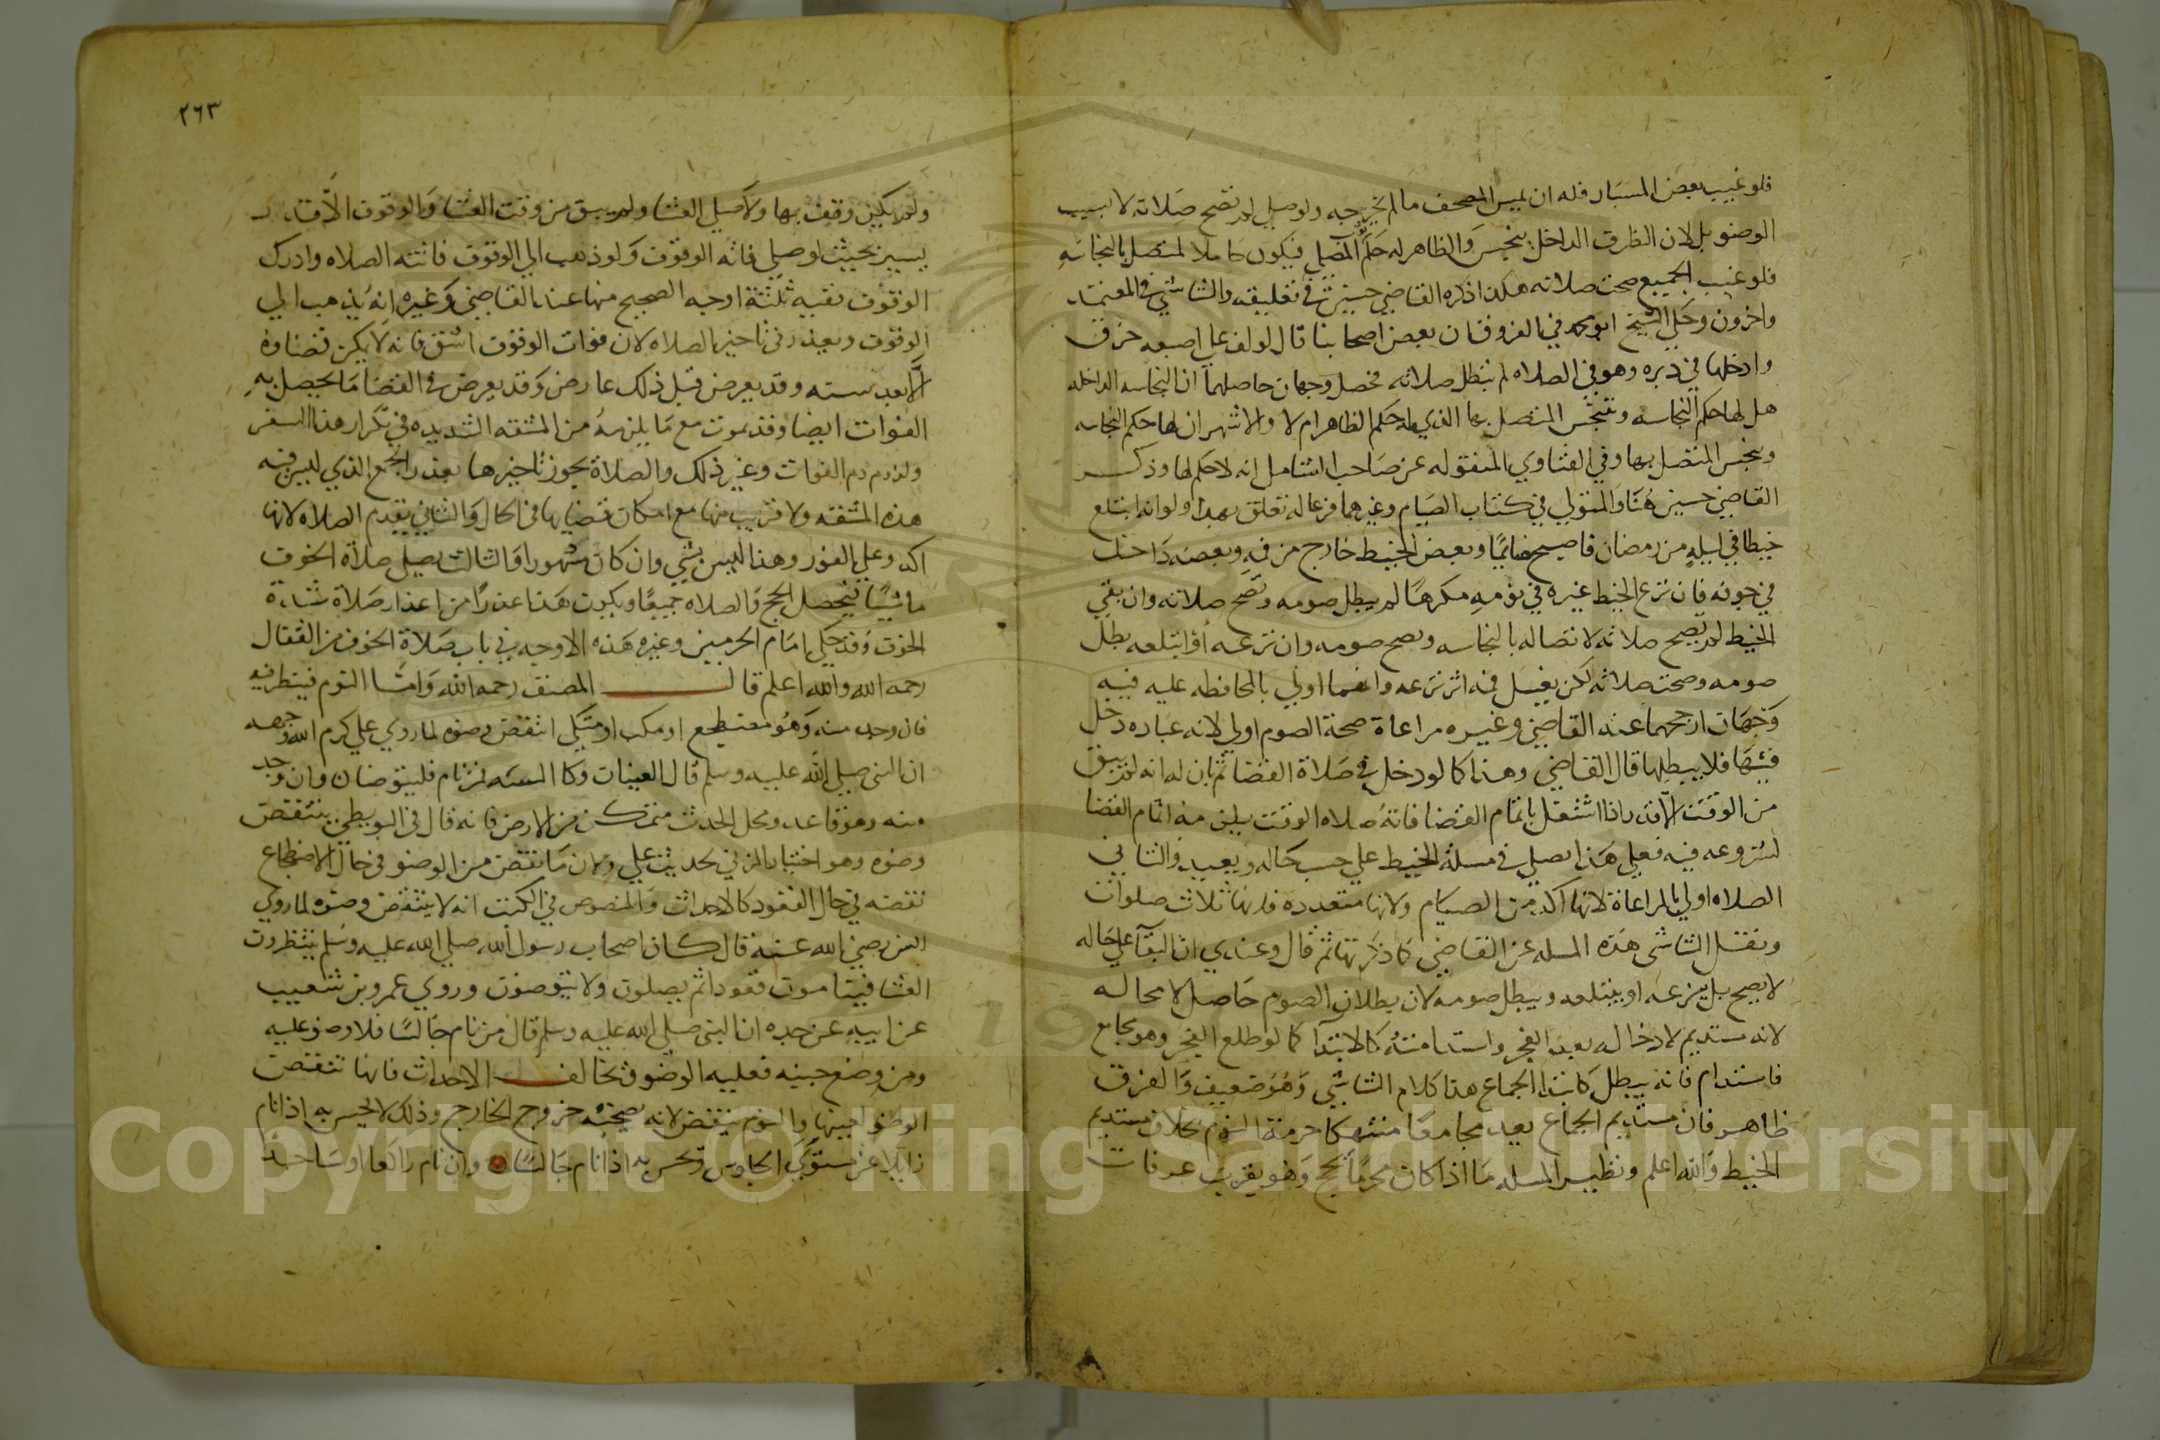 فلو غيب بعض المسبار فله ان يمس المصحف ما لم يخرجه ولو صلى لم تصح صلاته لا بسبب
الوضو بل لان الطرف الداخل ينجس والظاهر له حكم المصلي فيكون حاملا لمتصل بالنجاسه
فلو غيب الجميع صحت صلاته هكذا ذكره القاضي حسين في تعليقه والشاشي في المعتمد
واخرون وحكى الشيخ ابو محمد في الفروق ان بعض اصحابنا قال لو لف على اصبعه خرقه
وادخلها في دبره وهو في الصلاه لم تبطل صلاته فحصل وجهان حاصلهما ان النجاسه الداخله
هل لها حكم النجاسه وتنجس المتصل بها الذي له حكم الظاهر ام لا والاشهر ان لها حكم النجاسه
وينجس المتصل بها وفي الفتاوي المنقوله عن صاحب الشامل انه لا حكم لها وذكر
القاضي حسين هنا والمتولي في كتاب الصيام وغيرهما فرعا له تعلق بهذا ولو انه ابتلع
خيطا في ليله من رمضان فاصبح صائما وبعض الخيط خارج من فيه وبعضه داخل
في جوفه فان نزع الخيط غيره في نومه مكرها لم يبطل صومه وتصح صلاته وان بقي
الخيط لم تصح صلاته لاتصاله بالنجاسه ويصح صومه وان نزعه او ابتلعه بطل
صومه وصحت صلاته لكن يغسل فمه اثر نزعه وايهما اولى بالمحافظه عليه فيه
وجهان ارجحهما عند القاضي وغيره مراعاة صحة الصوم اولى لانه عباده دخل
فيها فلا يبطلها قال القاضي وهذا كما لو دخل في صلاة القضا ثم بان له انه لم يبق
من الوقت الا قدر اذا اشتغل باتمام القضا فاته صلاه الوقت يلزمه اتمام القضا
لشروعه فيه فعلى هذا يصلي في مسلة الخيط على حسب حاله ويعيد والثاني
الصلاه اولى بالمراعاة لانها اكد من الصيام ولانها متعدده فانها ثلاث صلوات
ونقل الشاشي هذه المسله عن القاضي كما ذكرتها ثم قال وعندي ان البقا على حاله
لا يصح بل ينزعه او يبتلعه ويبطل صومه لان بطلان الصوم حاصل لا محاله
لانه مستديم لادخاله بعد الفجر واستدامته كالابتدا كما لو طلع الفجر وهو مجامع
فاستدام فانه يبطل كابتدا الجماع هذا كلام الشاشي وهو ضعيف والفرق
ظاهر فان مستديم الجماع يعد مجامعا منتهكا حرمة اليوم بخلاف مستديم
الخيط والله اعلم ونظير المسله ما اذا كان محرما بحج وهو بقرب عرفات
٢٦٣
ولم يكن وقف بها ولا صلى العشا ولم يبق من وقت العشا والوقوف الا قدر
يسير بحيث لو صلى فاته الوقوف ولو ذهب الى الوقوف فاتته الصلاه وادرك
الوقوف ففيه ثلثة اوجه الصحيح منها عند القاضي وغيره انه يذهب الى
الوقوف ويعذر في تاخير الصلاه لان فوات الوقوف اشق فانه لا يمكن قضاوه
الا بعد سنه وقد يعرض قبل ذلك عارض وقد يعرض في القضا ما يحصل به
الفوات ايضا وقد يموت مع ما يلزمه من المشقه الشديده في تكرار هذا السفر
ولزوم دم الفوات وغير ذلك والصلاة يجوز تاخيرها بعذر الجمع الذي ليس فيه
هذه المشقه ولا قريب منها مع امكان قضايها في الحال والثاني يقدم الصلاه لانها
اكد وعلى الفور وهذا ليس بشي وان كان مشهورا والثالث يصلي صلاة الخوف
ماشيا فيحصل الحج والصلاه جميعا ويكون هذا عذرا من اعذار صلاة شدة
الخوف وقد حكى امام الحرمين وغيره هذه الاوجه في باب صلاة الخوف عن القفال
رحمه الله والله اعلم قال المصنف رحمه الله واما النوم فينظر فيه
فان وجد منه وهو مضطجع او مكب او متكي انتقض وضوه لما روي علي كرم الله وجهه
ان النبي صلى الله عليه وسلم قال العينان وكا السه فمن نام فليتوضا وان وجد
منه وهو قاعد ومحل الحدث متمكن من الارض فانه قال في البويطي ينتقض
وضوه وهو اختيار المزني لحديث علي ولان ما نقض من الوضو في حال الاضطجاع
نقضه في حال القعود كالاحداث والمنصوص في الكتب انه لا ينتقض وضوه لما روى
انس رضي الله عنه قال كان اصحاب رسول الله صلى الله عليه وسلم ينتظرون
العشا فينامون قعودا ثم يصلون ولا يتوضون وروي عمرو بن شعيب
عن ابيه عن جده ان النبي صلى الله عليه وسلم قال من نام جالسا فلا وضو عليه
ومن وضع جنبه فعليه الوضو وتخالف الاحداث فانها تنقض
الوضو لعينها والنوم ينقض لانه يصحبه خروج الخارج وذلك لا يحس به اذا نام
زايلا عن مستوى الجلوس ويحس به اذا نام جالسا وان نام راكعا او ساجدا
Copyright © King Saud University